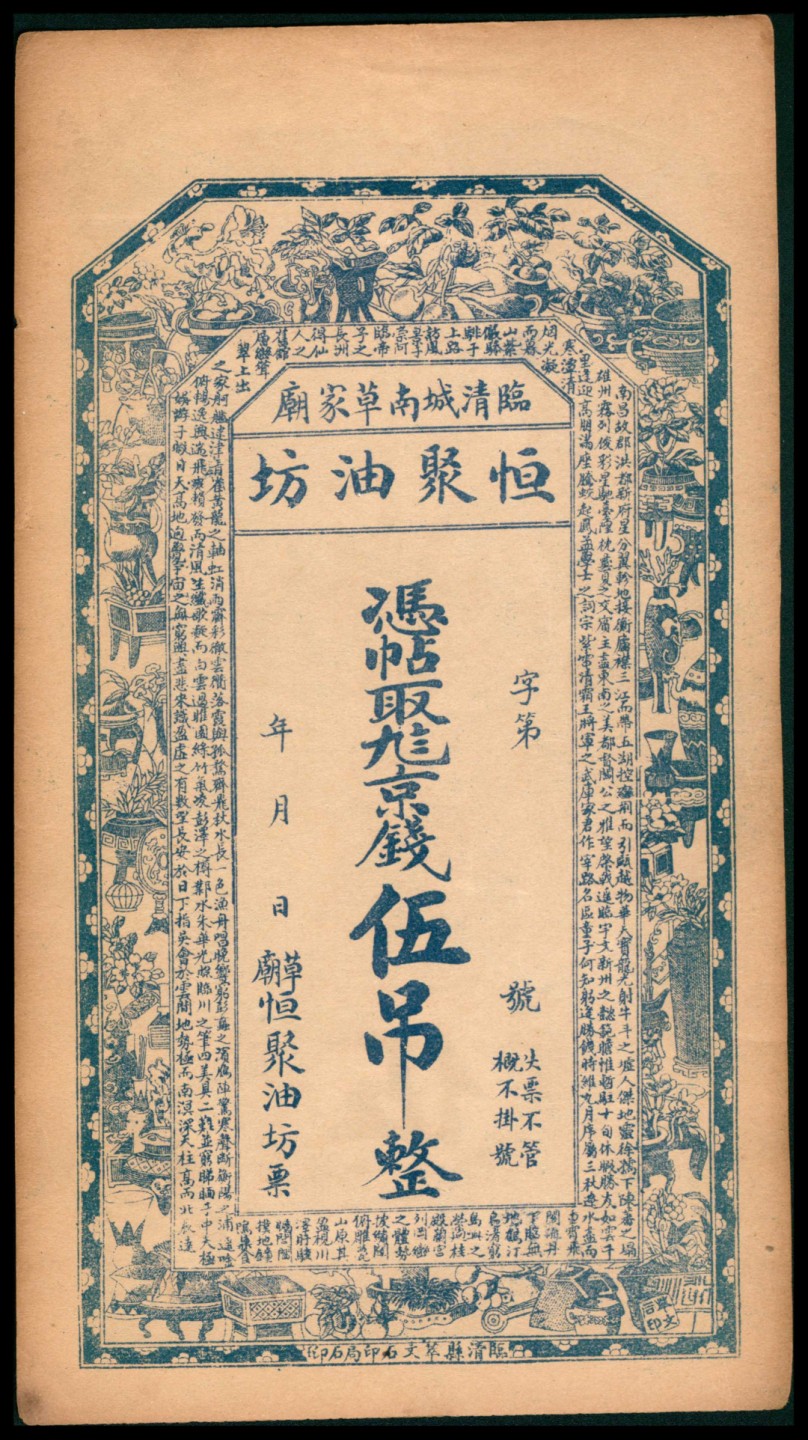 臨清城南草家廟
恒聚油坊
字第
號
失票不管
概不掛號
憑帖取九二京錢伍吊整
年月日
草廟恒聚油坊票
南昌故郡洪都新府星分翼軫地接衡廬襟三江而帶五湖控蠻荊而引甌越物華天寶龍光射牛斗之墟人傑地靈徐孺下陳蕃之榻
雄州霧列俊彩星馳臺隍枕夷夏之交賓主盡東南之美都督閻公之雅望棨戟遙臨宇文新州之懿範襜惟暫駐十旬休暇勝友如雲千
里逢迎高朋滿座騰蛟起鳳孟學士之詞宗紫電清霜王將軍之武庫家君作宰路名區童子何知躬逢勝餞時維九月序屬三秋潦水盡而
寒潭清
烟光凝
而暮
山紫
儼驂
騑于
上路
訪風
景于
崇阿
臨帝
子之
長洲
得仙
人之
舊館
層巒聳
翠上出
重霄飛
閣流丹
下臨無
地鶴汀
鳧渚窮
島嶼之
縈迴桂
殿蘭宮
列岡巒
之體勢
披繡闥
俯雕甍
山原其
盈視川
澤盱駭
矚閭閻
撲地鐘
鳴鼎食
之家舸艦迷津青雀黃龍之軸虹消雨霽彩徹雲衢落霞與孤鶩齊飛秋水長一色漁舟唱晚響窮彭蠡之濱雁陣驚寒聲斷衡陽之浦遙吟
俯暢逸興遄飛爽籟發而清風生纖歌凝而白雲遏睢園綠竹氣凌彭澤之樽鄴水朱華光照臨川之筆四美具二難並窮睇眄于中天極
娛遊于暇日天高地迥覺宇宙之無窮興盡悲來識盈虛之有數望長安於日下指吳會於雲間地勢極而南溟深天柱高而北辰遠
臨清縣萃文石印局石印